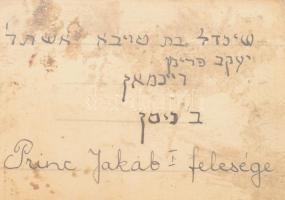 שינדל בת שרבא אשת ר'
יעקב פרינץ
רייכמאן
ב ניסן
Princ Jákáb I felesége